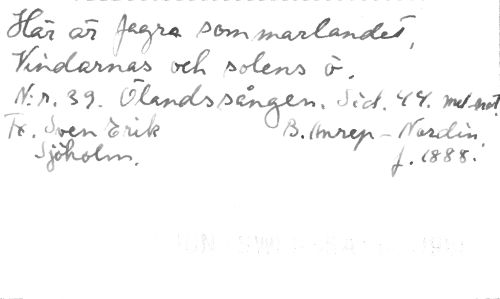 Här är fagra sommarlandet,
Vindarnas och solens ö.
N:r. 39. Ölandssången. Sid. 44. med not.
Tx. Sven Erik B. Amrep-Nordin,
Sjöholm. f. 1888.